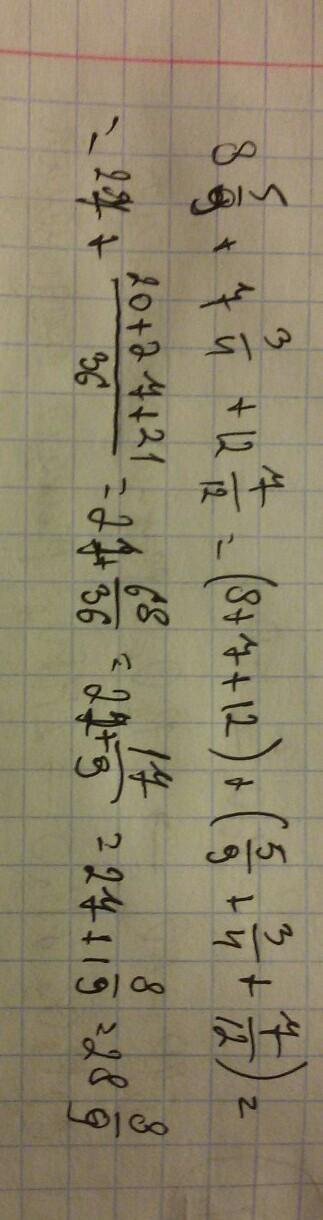 8 5/9 + 7 3/4 + 12 7/12 = (8+7+12) + (5/9 + 3/4 + 7/12) =
= 27 + (20+27+21)/36 = 27 + 68/36 = 27 + 17/9 = 27 + 1 8/9 = 28 8/9